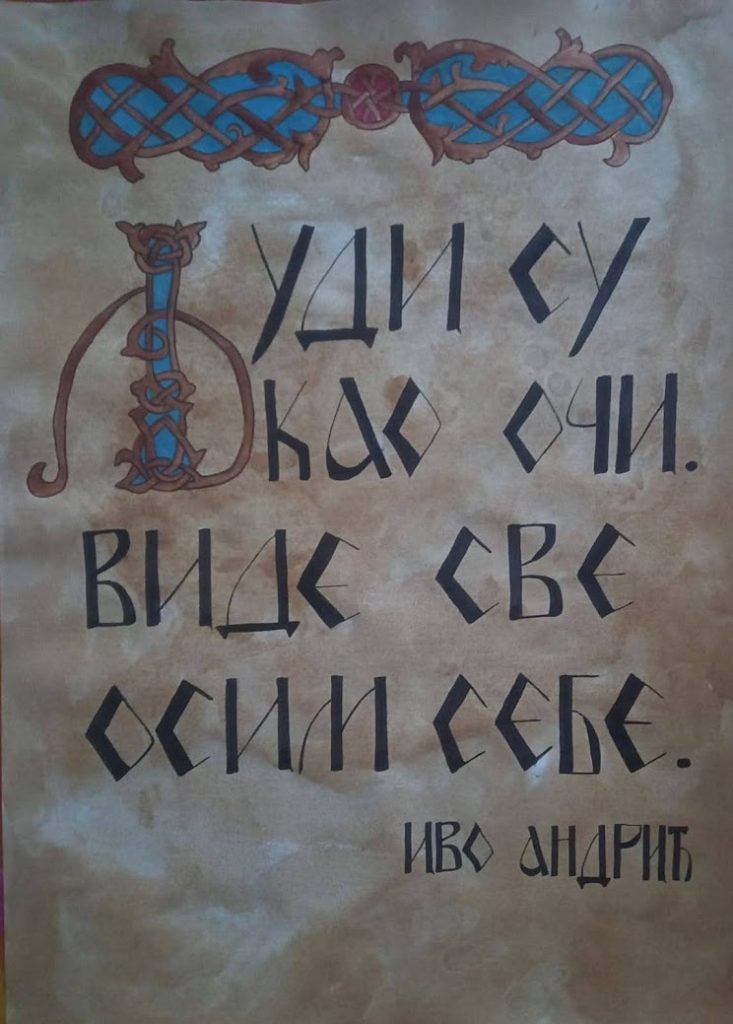 ЉУДИ СУ
КАО ОЧИ.
ВИДЕ СВЕ
ОСИМ СЕБЕ.
ИВО АНДРИЋ